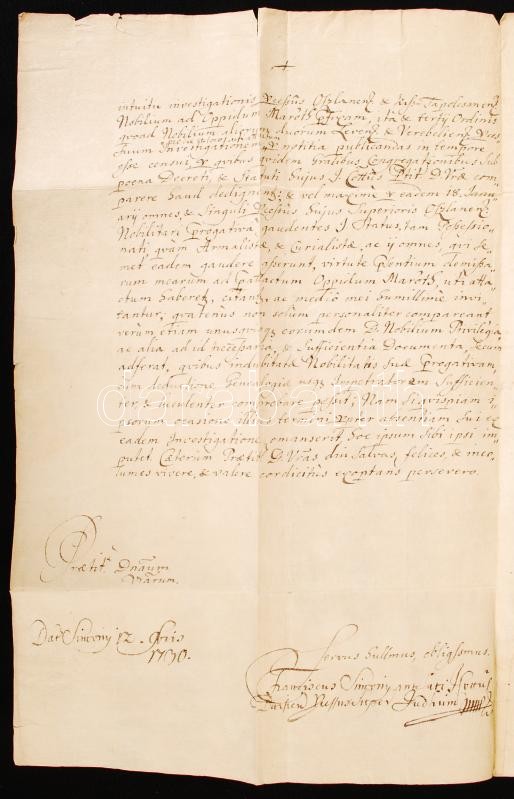 intuitu investigationis Processus Oszlanens & Kis Tapolcsanens
Nobilium ad Oppidum Maróth Ptream, ita & tertij Ordinis
quoad Nobilium aliorum duorum Levens & Verebeliens Proces
suum Investigationem & notitia publicandas in tempore
esse censui & quibus quidem gnalibus Congregationibus sub
poena Decreti, & Statuti hujus I. Cottus Ptit. D. Vrae com
parere haud dedignent; & vel maxime & eadem 18. Janu
arij omnes, & Singuli Processus hujus Superioris Oszlanens
Nobilitari Progativa gaudentes I. Status, tam Possessio
nati, quam Armalistae, & Curialistae, ac ij omnes, qui se
met eadem gaudere asserunt, virtute Psentium demissa
rum mearum ad Pattactum Oppidum Maróth, uti atta
ctum haberet, citant, ac medio mei humillime invi
tantur; quatenus non solum personaliter compareant
verum etiam unusquisq eorumdem D. Nobilium Privilegia
ac alia ad id necessaria, & Sufficientia Documenta secum
adferat, quibus indubitatae Nobilitatis Suae Progativam
cum deductione Genealogiae usq Impetratorem Sufficien
ter, & luculenter comprobare possit; Nam Siquispiam i
psorum ocasione illius termini & per absentiam Sui ex
eadem Investigatione omanserit, hoc ipsum Sibi ipsi im
putet. Caeterum Praetit D. Vras diu Salvas, felices, & inco
lumes vivere, & valere cordicitus exoptans persevero.
Praetit. Dnaum
Vrarum.
Dat Simony 12. Xbris
1730.
Servus hummus, obligssmus.
Franciscus Simony ante lati I. Cottus
Barsien Pssus Super Judlium